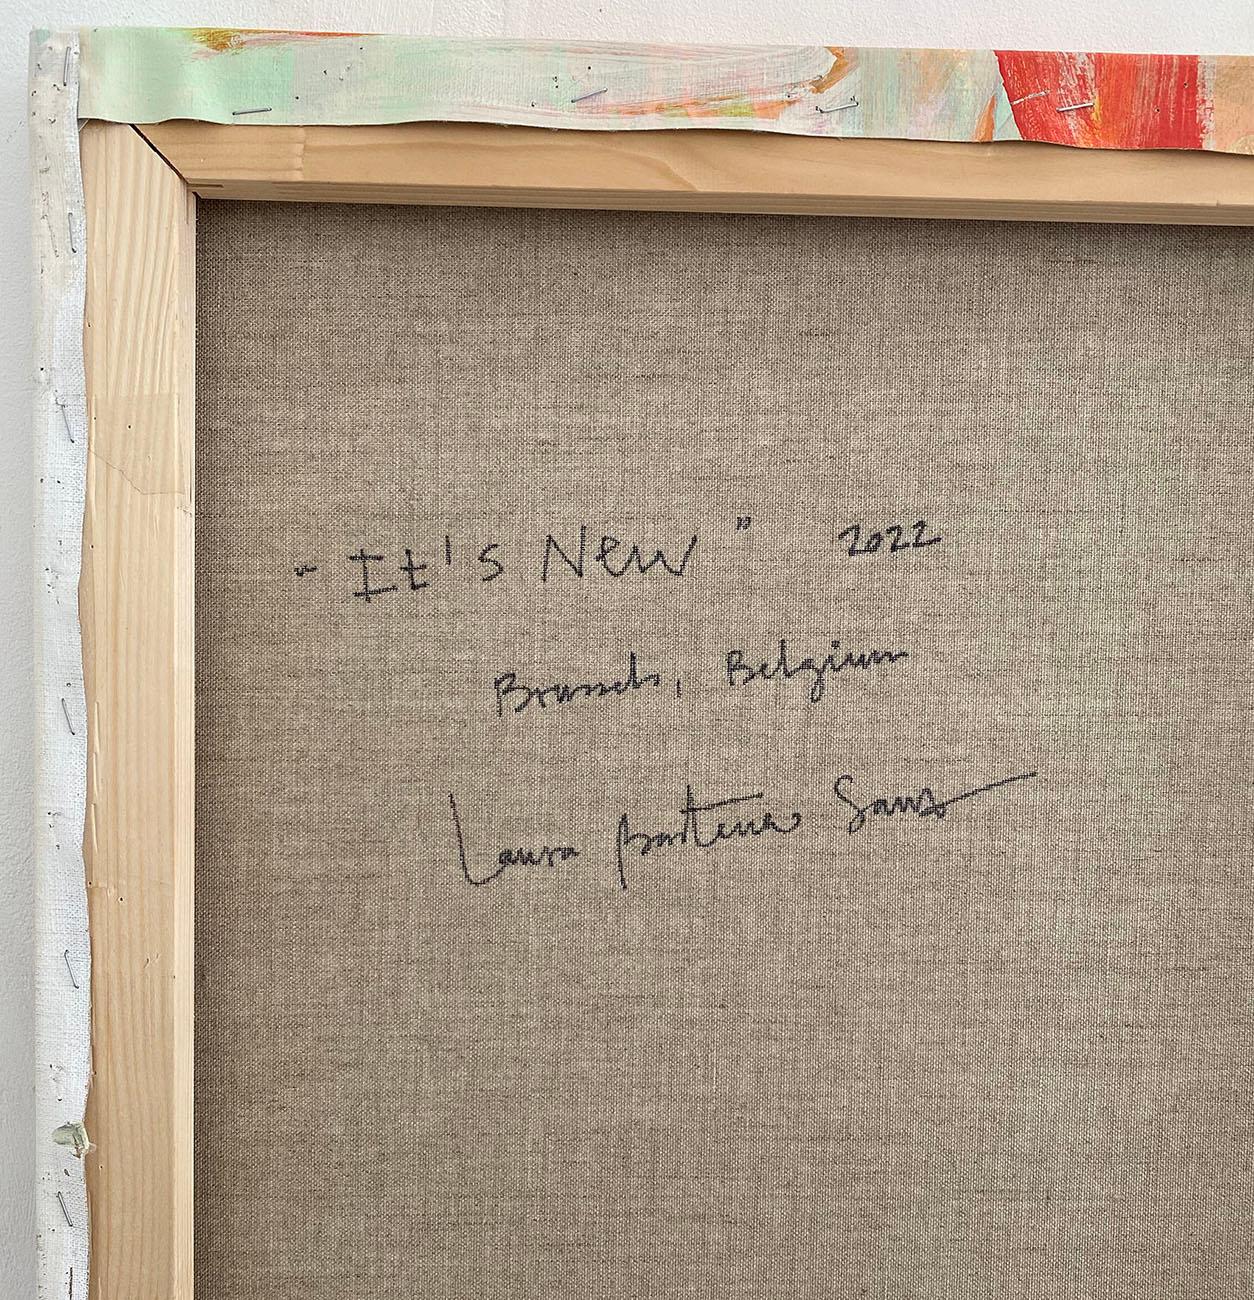 "It's New" 2022
Brussels, Belgium
Laura Sanz